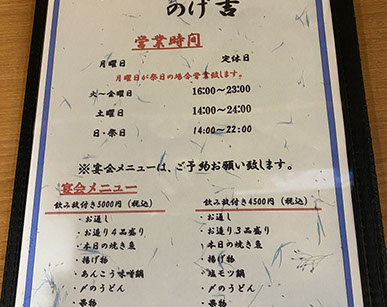 あげ吉
営業時間
月曜日 定休日
月曜日が祭日の場合営業致します。
火〜金曜日 16:00〜23:00
土曜日 14:00〜24:00
日・祭日 14:00〜22:00
※宴会メニューは、ご予約お願い致します。
宴会メニュー
飲み放付き5000円（税込）
・お通し
・お造り4品盛り
・本日の焼き魚
・揚げ物
・あんこう味噌鍋
・〆のうどん
・果物
飲み放付き4500円（税込）
・お通し
・お造り3品盛り
・本日の焼き魚
・揚げ物
・塩モツ鍋
・〆のうどん
・果物